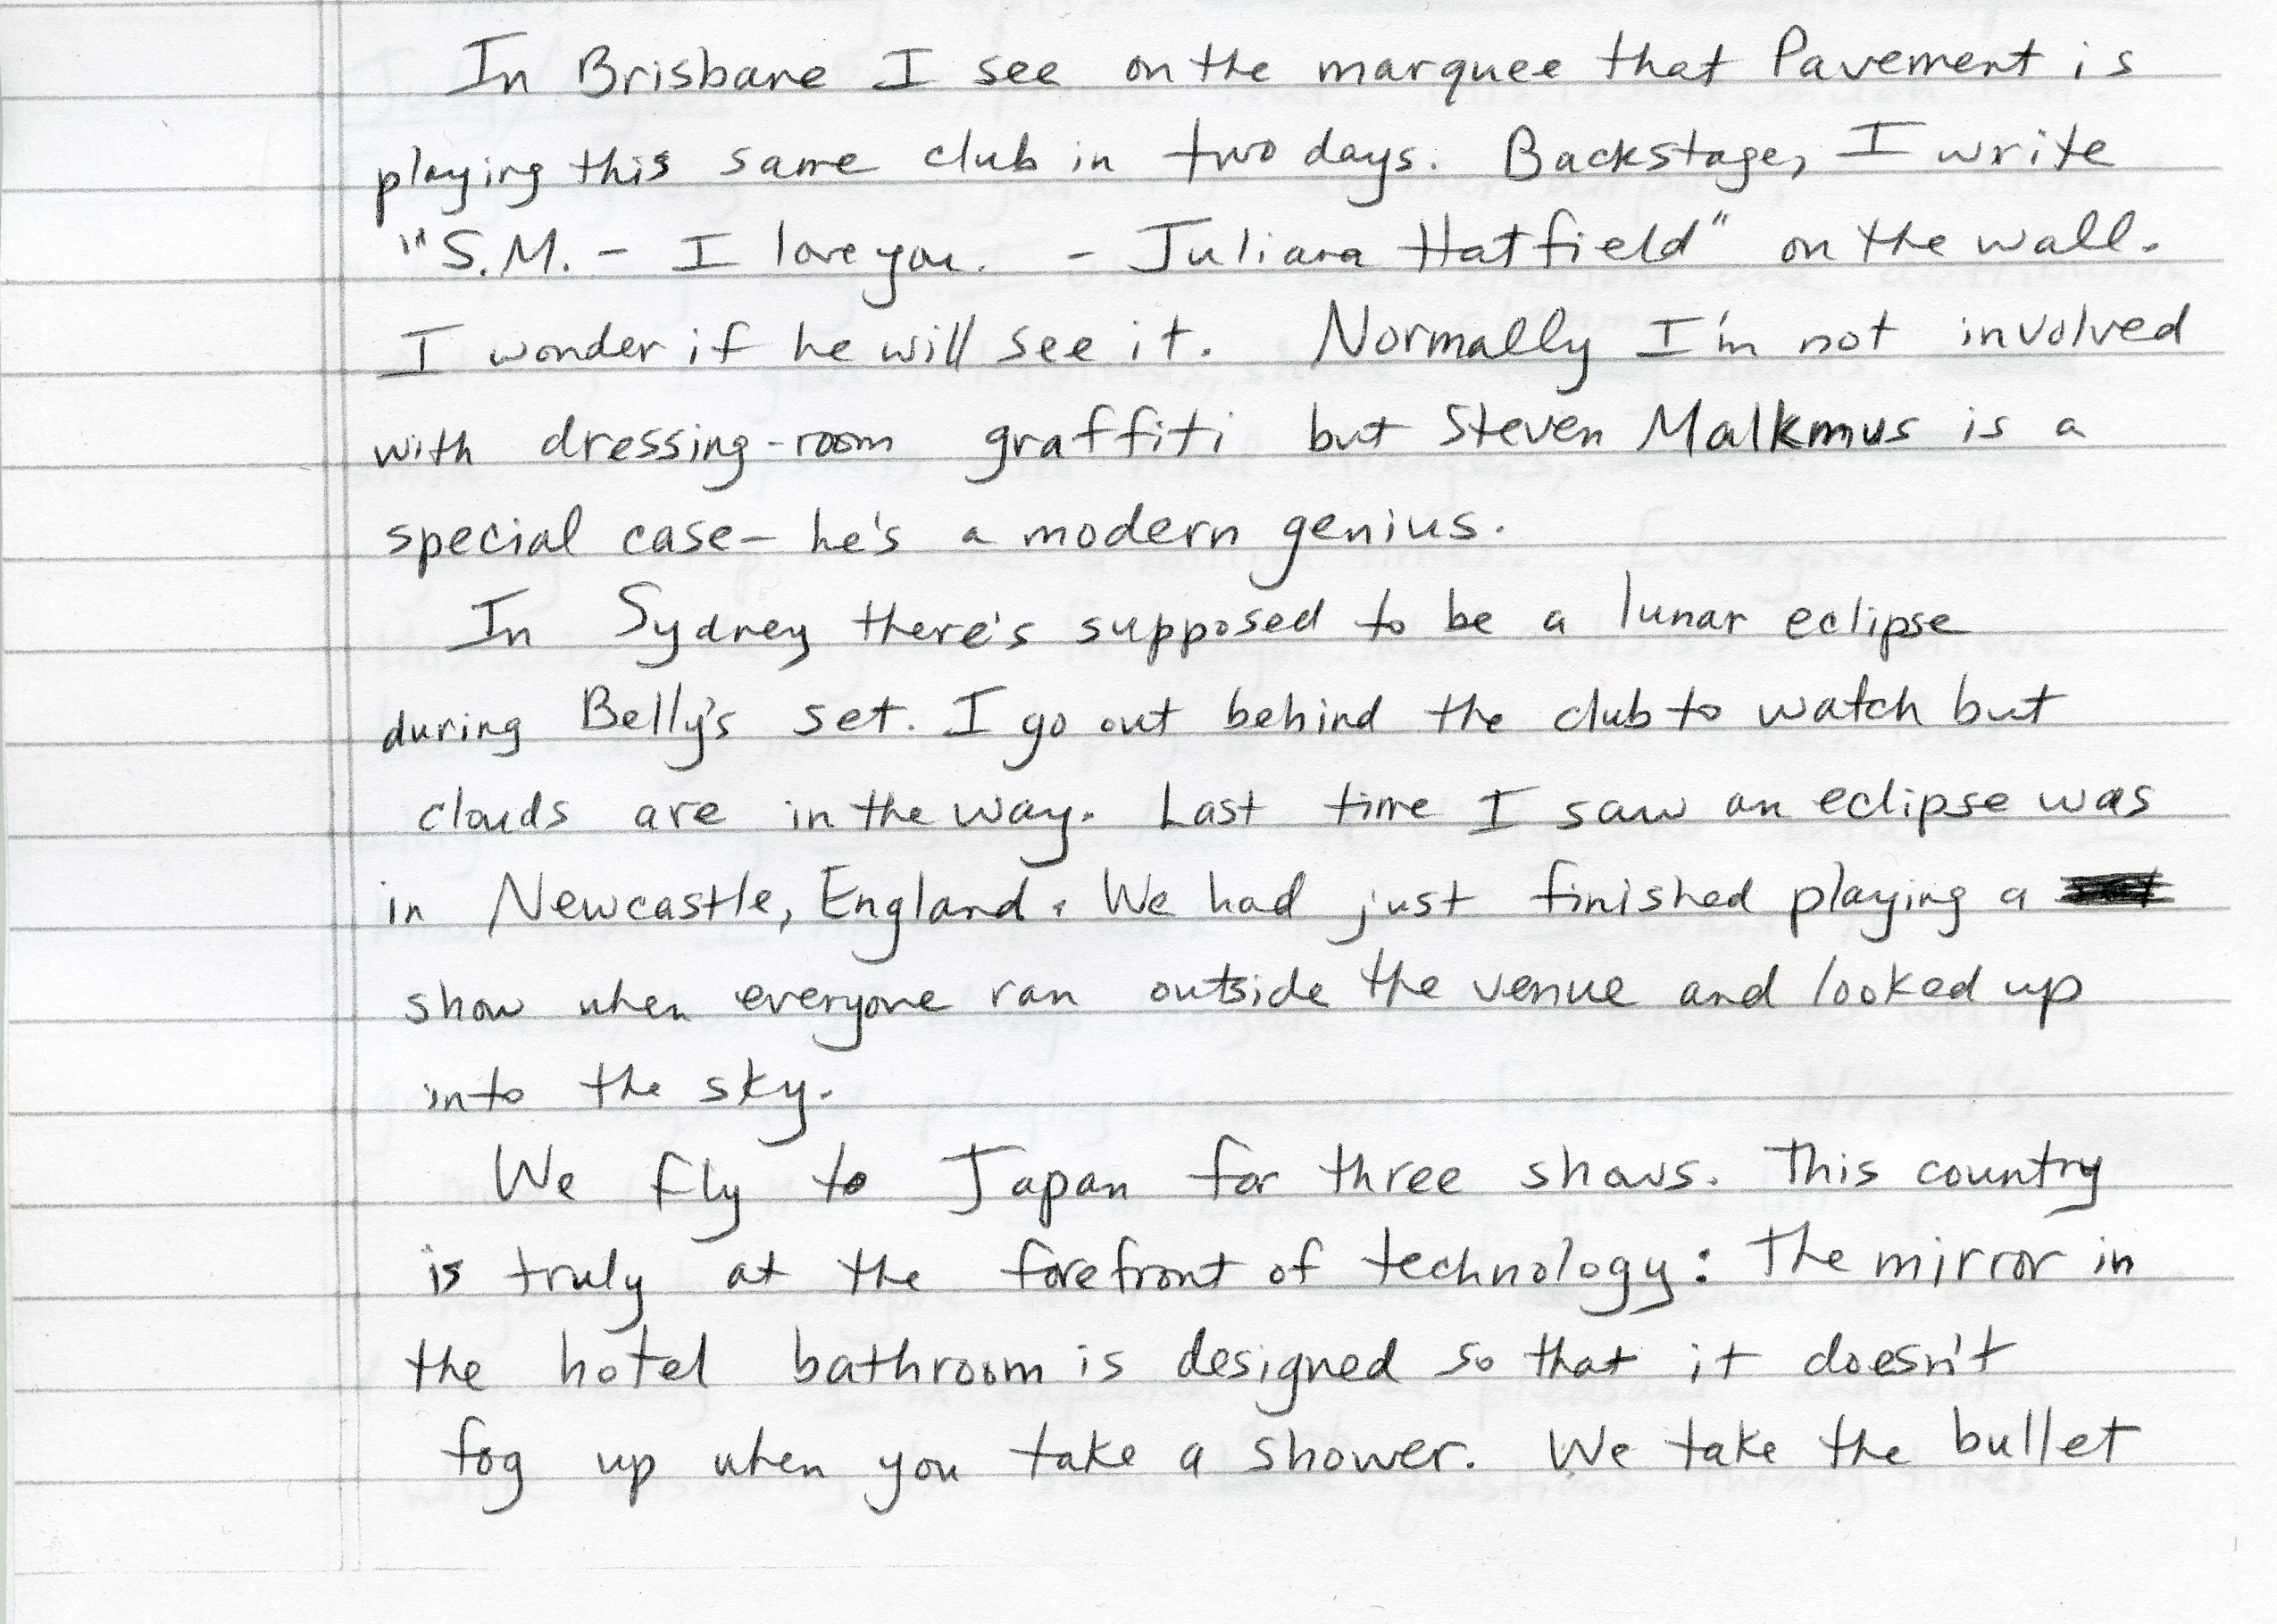 In Brisbane I see on the marquee that Pavement is
playing this same club in two days. Backstage, I write
"S.M. - I love you. - Juliana Hatfield" on the wall.
I wonder if he will see it. Normally I'm not involved
with dressing-room graffiti but Steven Malkmus is a
special case - he's a modern genius.
In Sydney there's supposed to be a lunar eclipse
during Belly's set. I go out behind the club to watch but
clouds are in the way. Last time I saw an eclipse was
in Newcastle, England. We had just finished playing a
show when everyone ran outside the venue and looked up
into the sky.
We fly to Japan for three shows. This country
is truly at the forefront of technology: The mirror in
the hotel bathroom is designed so that it doesn't
fog up when you take a shower. We take the bullet